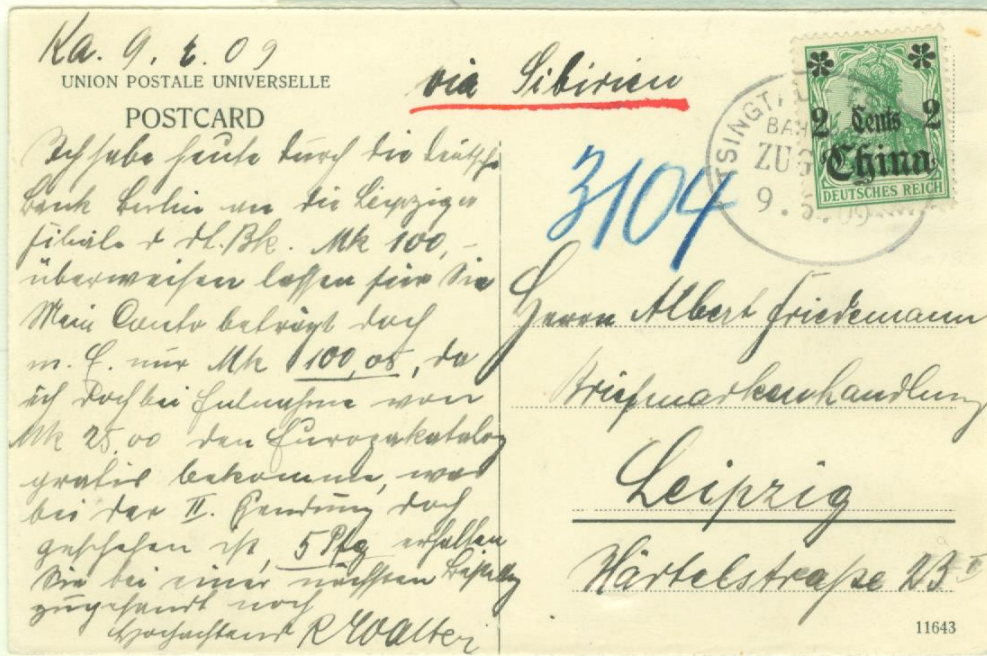 Ka. 9. 09
UNION POSTALE UNIVERSELLE
POSTCARD
via Sibirien
Ich habe heute durch die Deutsche
Bank Berlin an die Leipziger
Filiale d. dt. Bk. Mk 100,-
überweisen lassen für Sie
Mein Conto beträgt doch
m. E. nur Mk 100,05, da
ich doch bei Entnahme von
Mk 25,00 den Europakatalog
gratis bekomme, was
bei der II. Sendung doch
geschehen ist, 5 Pfg erhalten
Sie bei einer nächsten
zugesandt noch
Hochachtend R Walter
3104
TSINGT
BAH
ZUG
9. 5. 09
2 Cents 2
China
DEUTSCHES REICH
Herrn Albert Friedemann
Briefmarkenhandlung
Leipzig
Härtelstraße 23 I
11643